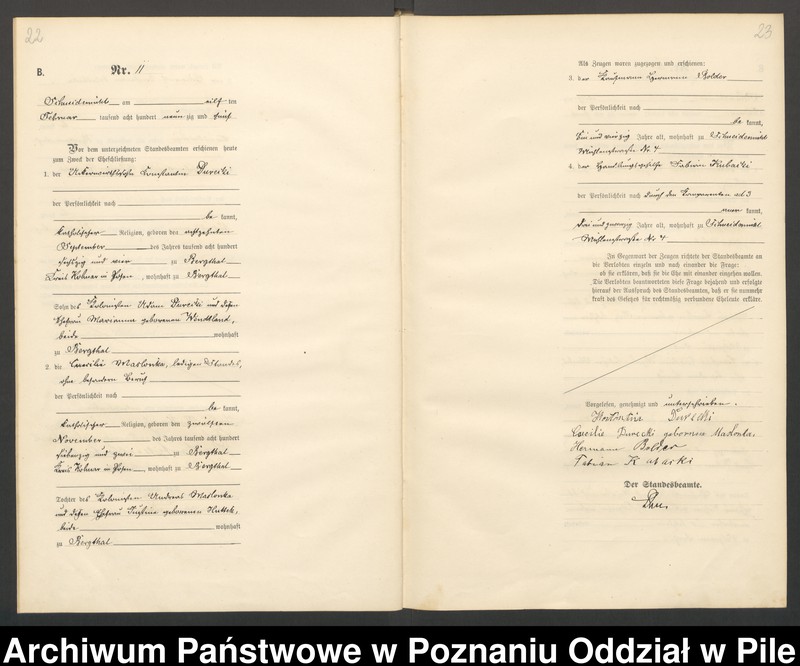 22
B.
Nr. 11
Schneidemühl am eilf ten
Februar tausend acht hundert neun zig und fünf
Vor dem unterzeichneten Standesbeamten erschienen heute
zum Zweck der Eheschließung:
1. der Ackerwirthssohn Constantin Durecki
der Persönlichkeit nach
be kannt,
katholischer Religion, geboren den achtzehnten
September des Jahres tausend acht hundert
sechszig und vier zu Bergthal
Kreis Kolmar in Posen, wohnhaft zu Bergthal
Sohn des Kolonisten Adam Durecki und dessen
Ehefrau Marianna geborenen Wendtland,
beide wohnhaft
zu Bergthal
2. die Caecilie Maslonka, ledigen Standes,
ohne besondern Beruf
der Persönlichkeit nach
be kannt,
katholischer Religion, geboren den zwölften
November des Jahres tausend acht hundert
siebenzig und zwei zu Bergthal
Kreis Kolmar in Posen, wohnhaft zu Bergthal
Tochter des Kolonisten Andreas Maslonka
und dessen Ehefrau Justine geborenen
beide wohnhaft
zu Bergthal
23
Als Zeugen waren zugezogen und erschienen:
3. der Kaufmann Hermann Bolder
der Persönlichkeit nach
be kannt,
und vierzig Jahre alt, wohnhaft zu Schneidemühl
Mühlenstraße Nr. 4
4. der Handlungsgehilfe Fabian Kubacki
der Persönlichkeit nach durch den Comparenten ad 3
kannt,
drei und zwanzig Jahre alt, wohnhaft zu Schneidemühl
Mühlenstraße Nr. 4
In Gegenwart der Zeugen richtete der Standesbeamte an
die Verlobten einzeln und nach einander die Frage:
ob sie erklären, daß sie die Ehe mit einander eingehen wollen.
Die Verlobten beantworteten diese Frage bejahend und erfolgte
hierauf der Ausspruch des Standesbeamten, daß er sie nunmehr
kraft des Gesetzes für rechtmäßig verbundene Eheleute erkläre.
Vorgelesen, genehmigt und unterschrieben.
Konstantin Durecki
Caecilie Durecki geborenen Maslonka.
Hermann Bolder
Fabian Kubacki
Der Standesbeamte.
Archiwum Państwowe w Poznaniu Oddział w Pile